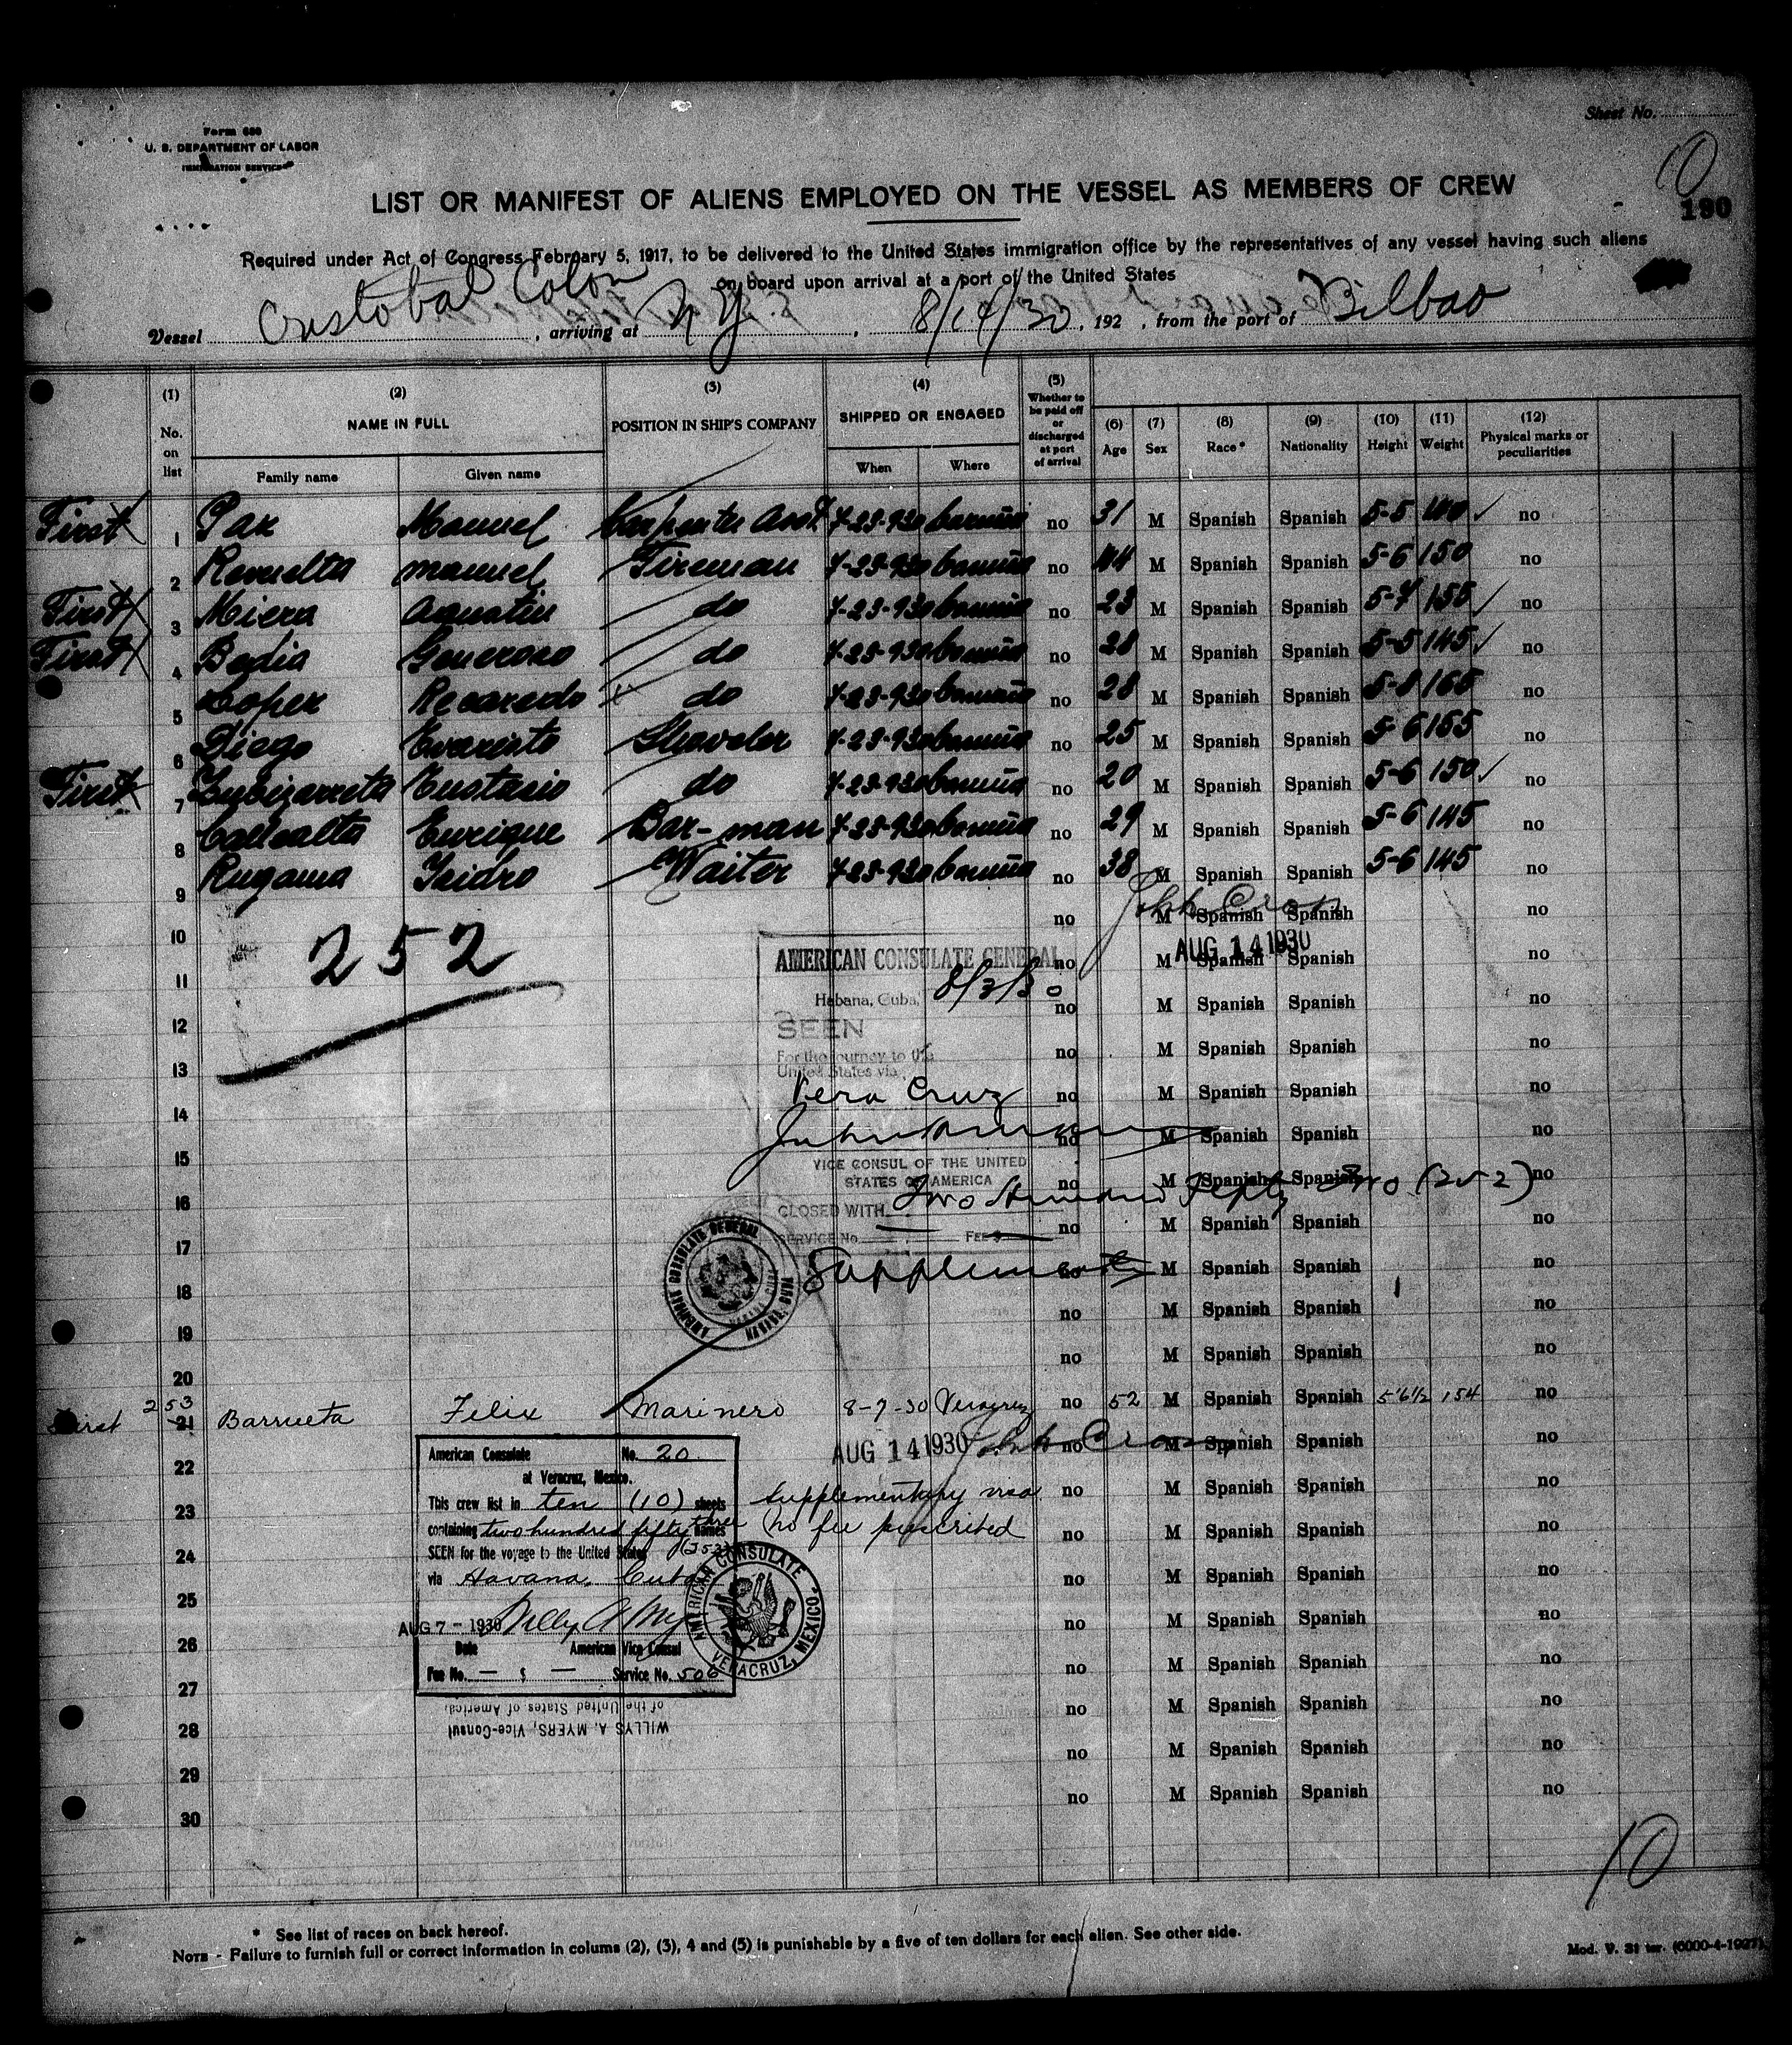 Sheet No.
Form 680
U. S. DEPARTMENT OF LABOR
IMMIGRATION SERVICE
10
190
LIST OR MANIFEST OF ALIENS EMPLOYED ON THE VESSEL AS MEMBERS OF CREW
Required under Act of Congress February 5, 1917, to be delivered to the United States immigration office by the representatives of any vessel having such aliens
on board upon arrival at a port of the United States
Vessel Cristobal Colon, arriving at N Y., 8/14/30, 192 , from the port of Bilbao
(1) No. on list (2) NAME IN FULL Family name Given name (3) POSITION IN SHIP'S COMPANY (4) SHIPPED OR ENGAGED When Where (5) Whether to be paid off or discharged at port of arrival (6) Age (7) Sex (8) Race* (9) Nationality (10) Height (11) Weight (12) Physical marks or peculiarities
First 1 Paz Manuel Carpenter Asst 7-23-930 Coruña no 31 M Spanish Spanish 5-5 no
2 Revuelta Manuel Fireman 7-23-930 Coruña no 44 M Spanish Spanish 5-6 150 no
First 3 Miera Agustin do 7-23-930 Coruña no 23 M Spanish Spanish 5-7 155 no
First 4 Bedia Generoso do 7-23-930 Coruña no 28 M Spanish Spanish 5-5 145 no
5 Lopez Recaredo do 7-23-930 Coruña no 28 M Spanish Spanish 5-8 165 no
6 Diego Evaristo Shoveler 7-23-930 Coruña no 25 M Spanish Spanish 5-6 155 no
First 7 Zubizarreta Eustasio do 7-23-930 Coruña no 20 M Spanish Spanish 5-6 150 no
8 Enrique Bar-man 7-23-930 Coruña no 29 M Spanish Spanish 5-6 145 no
9 Rugama Isidro Waiter 7-23-930 Coruña no 38 M Spanish Spanish 5-6 145 no
10 no M Spanish Spanish no
John Cross
AUG 14 1930
252
11 no M Spanish Spanish no
AMERICAN CONSULATE GENERAL
Habana, Cuba, 8/3/30
12 no M Spanish Spanish no
SEEN
For the journey to the
United States via
13 no M Spanish Spanish no
Vera Cruz
14 no M Spanish Spanish no
15 no M Spanish Spanish no
VICE CONSUL OF THE UNITED
STATES OF AMERICA
16 no M Spanish Spanish no
CLOSED WITH Two Hundred Fifty Two (252)
SERVICE No. FEE $
17 no M Spanish Spanish no
AMERICAN CONSULATE GENERAL HABANA, CUBA
18 no M Spanish Spanish no
19 no M Spanish Spanish no
20 no M Spanish Spanish no
First 253 21 Barrueta Felix Marinero 8-7-30 Veracruz no 52 M Spanish Spanish 5'6½ 154 no
22 no M Spanish Spanish no
AUG 14 1930 John Cross
American Consulate No. 20
at Veracruz, Mexico.
23 no M Spanish Spanish no
This crew list in ten (10) sheets
containing two hundred fifty three names
Supplementary visa
No fee prescribed
24 no M Spanish Spanish no
SEEN for the voyage to the United States (253)
via Havana, Cuba
25 no M Spanish Spanish no
AMERICAN CONSULATE VERACRUZ, MEXICO
26 no M Spanish Spanish no
AUG 7 - 1930 Willys A Myers
Date American Vice Consul
27 no M Spanish Spanish no
Fee No. — $ — Service No. 506
28 no M Spanish Spanish no
WILLYS A. MYERS, Vice-Consul
of the United States of America
29 no M Spanish Spanish no
30 no M Spanish Spanish no
10
* See list of races on back hereof.
NOTE - Failure to furnish full or correct information in colums (2), (3), 4 and (5) is punishable by a five of ten dollars for each alien. See other side.
Mod. V. 31 ter. (6000-4-1927)